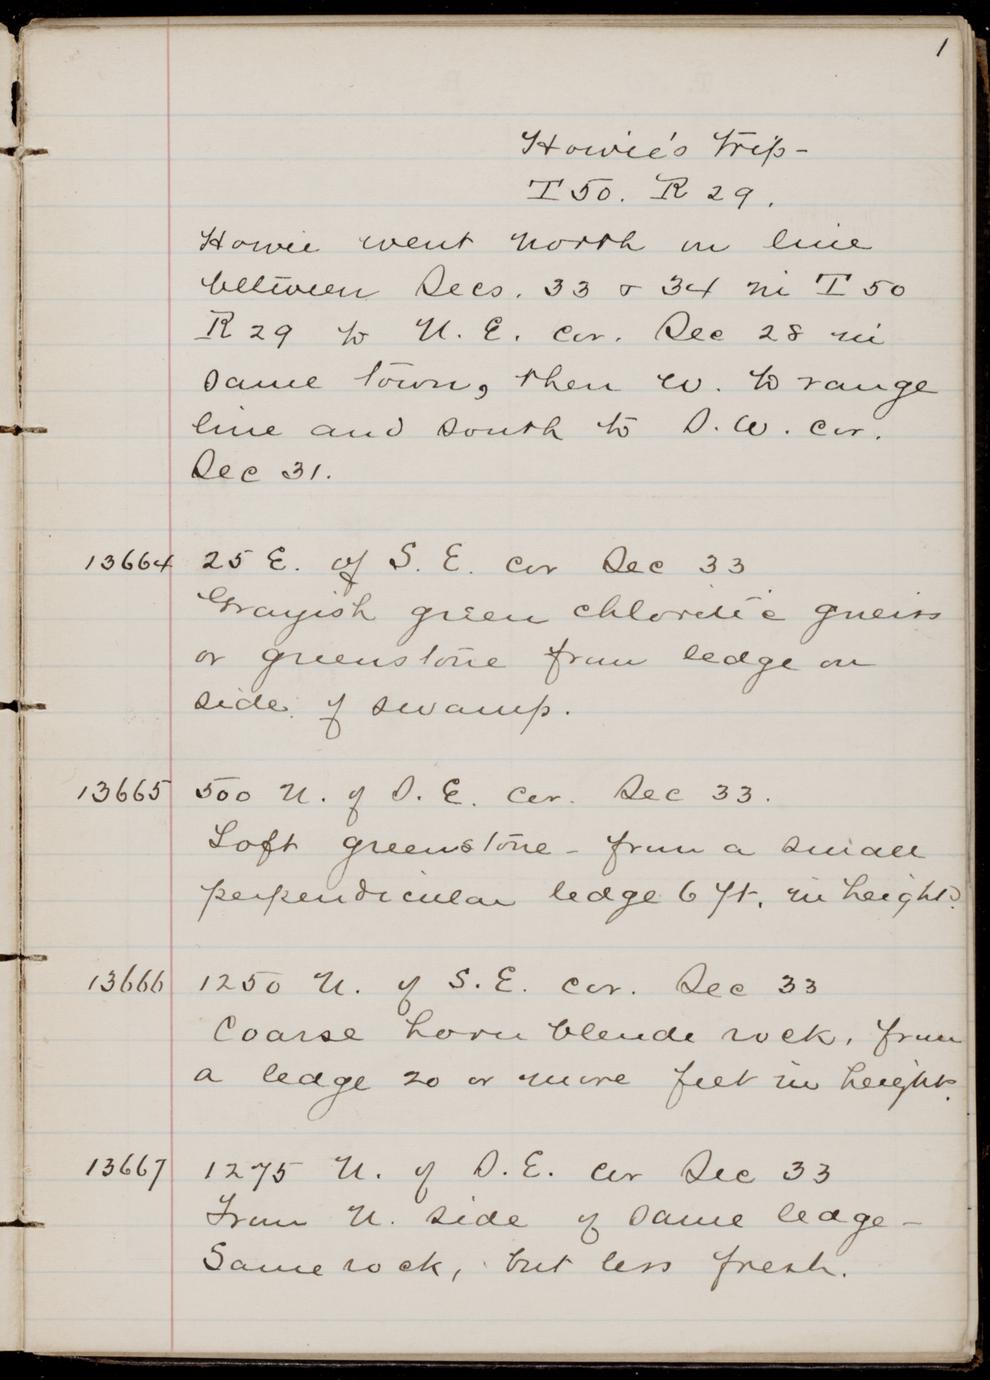 1
Howie's Trip -
T 50. R 29.
Howie went north on line
between Secs. 33 & 34 in T 50
R 29 to N. E. cor. Sec 28 in
same town, then W. to range
line and south to S. W. cor.
Sec 31.
13664 25 E. of S. E. cor Sec 33
Grayish green chloritic gneiss
or greenstone from ledge on
side of swamp.
13665 500 N. of S. E. cor. Sec 33.
Soft greenstone - from a small
perpendicular ledge 6 ft. in height.
13666 1250 N. of S. E. cor. Sec 33
Coarse hornblende rock, from
a ledge 20 or more feet in height.
13667 1275 N. of S. E. cor Sec 33
From N. side of same ledge -
Same rock, but less fresh.